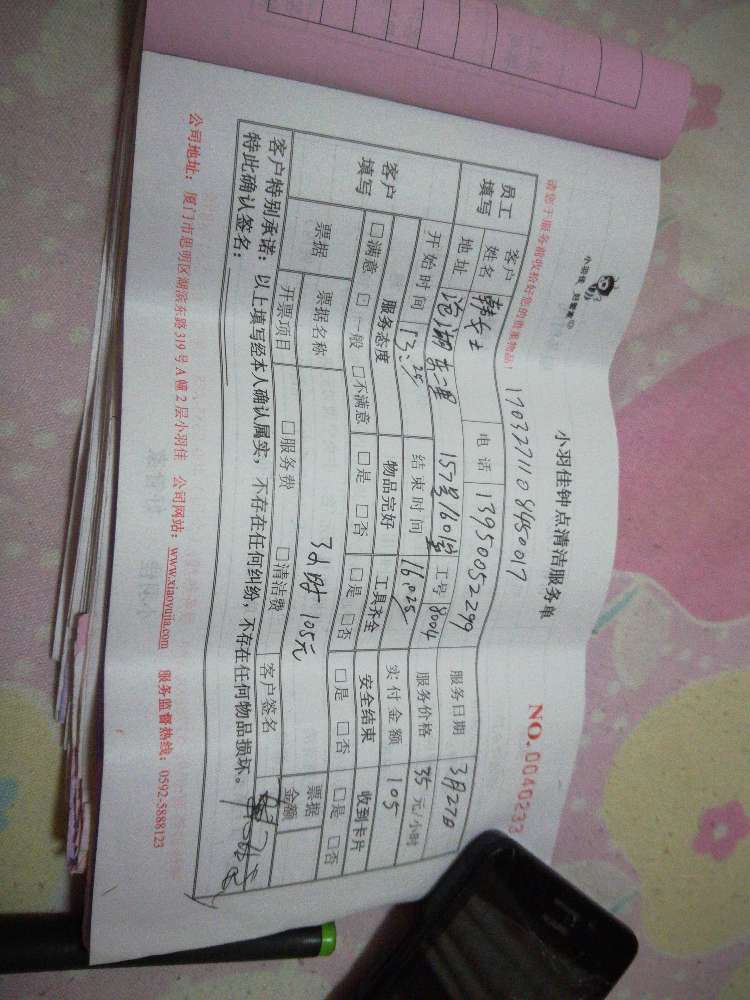 小羽佳钟点清洁服务单
小羽佳 到家来
NO.0040233
请您于服务前收检好您的贵重物品！
1703271108450017
员工填写 客户姓名 韩女士 电话 13950052299 服务日期 3月27日
地址 沧湖东二里 157号601室 工号 8004 服务价格 35元/小时
开始时间 13:25 结束时间 16:25 实付金额 105
客户填写 服务态度 物品完好 工具齐全 安全结束 收到卡片
□满意 □一般 □不满意 □是 □否 □是 □否 □是 □否 □是 □否
票据 票据名称 3小时 105元 票据金额
开票项目 □服务费 □清洁费 客户签名
客户特别承诺：以上填写经本人确认属实，不存在任何纠纷，不存在任何物品损坏。
特此确认签名：
公司地址：厦门市思明区湖滨东路319号A幢2层小羽佳 公司网站：www.xiaoyujia.com 服务监督热线：0592-5888123